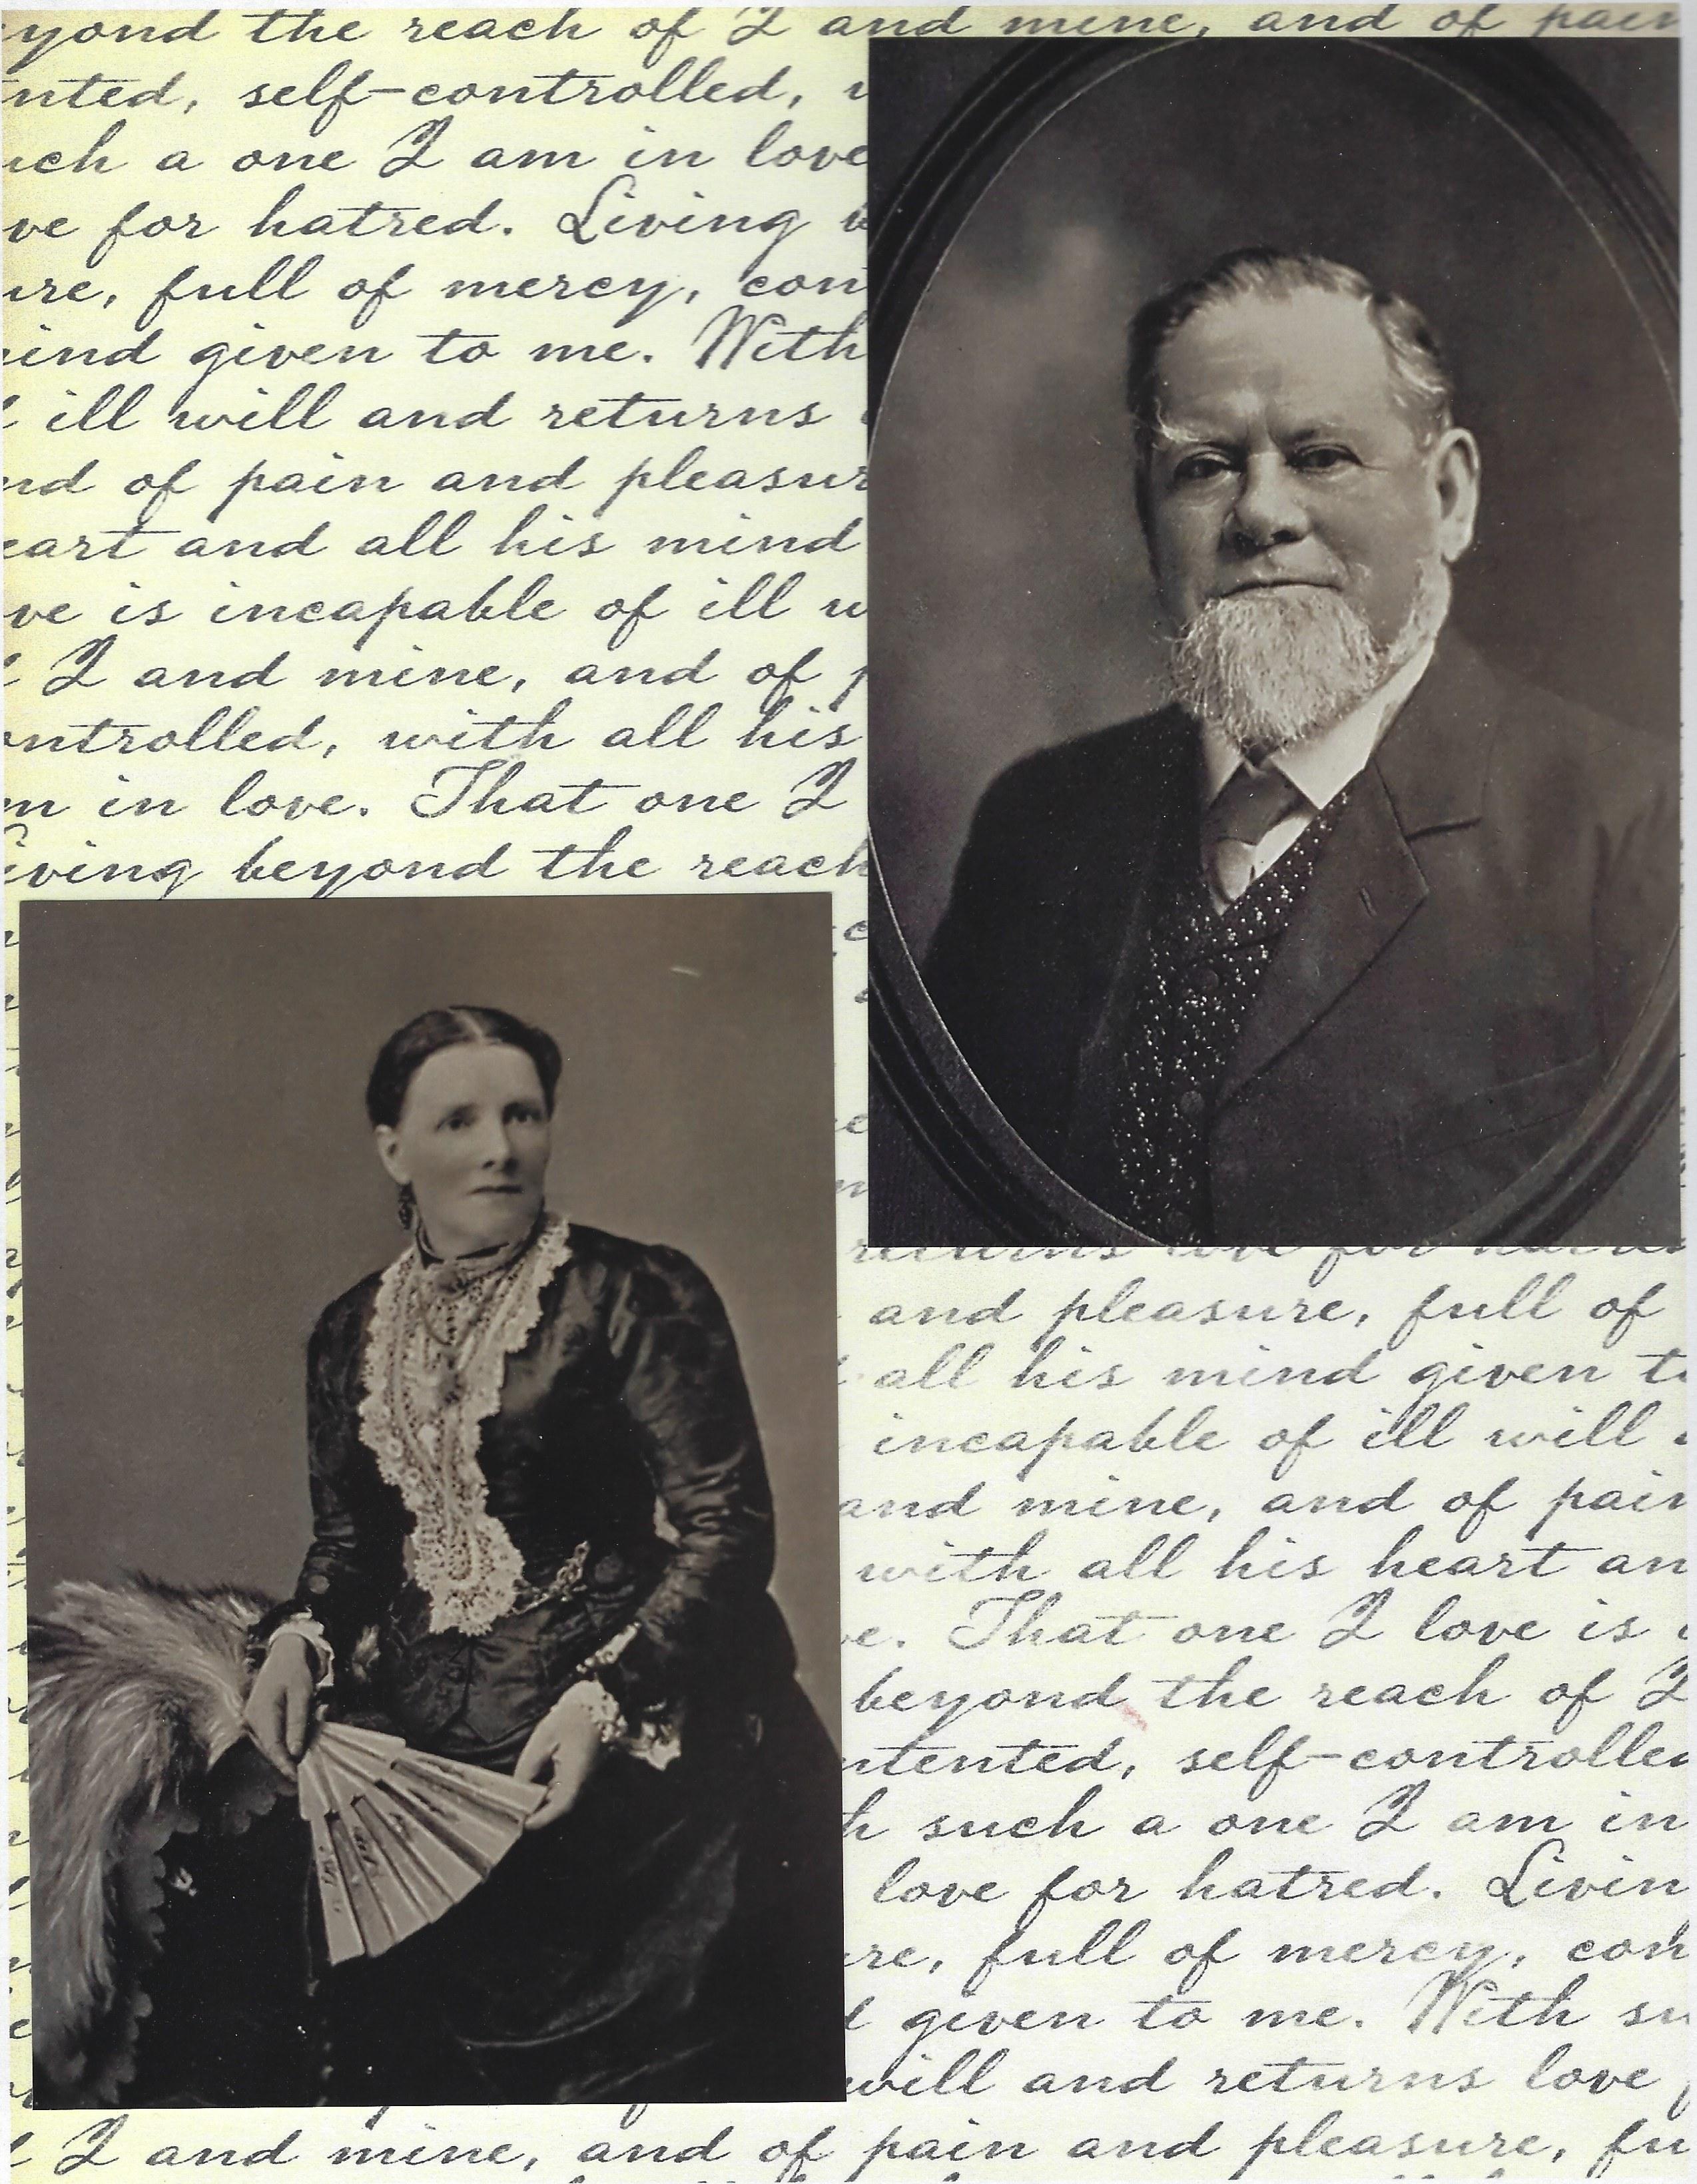 yond the reach of I and mine, and of pain
nted, self-controlled,
uch a one I am in love
ve for hatred. Living
ure, full of mercy, con
ind given to me. With
ill will and returns
nd of pain and pleasur
eart and all his mind
ve is incapable of ill w
I and mine, and of p
ontrolled, with all his
m in love. That one I
iving beyond the reach
returns love for hatred
and pleasure, full of
all his mind given to
incapable of ill will
and mine, and of pain
with all his heart an
ve. That one I love is
beyond the reach of I
ntented, self-controlled
th such a one I am in
love for hatred. Livin
ure, full of mercy, con
d given to me. With su
will and returns love
I and mine, and of pain and pleasure, fu